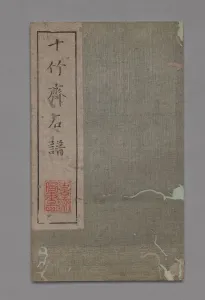 十竹齋石譜